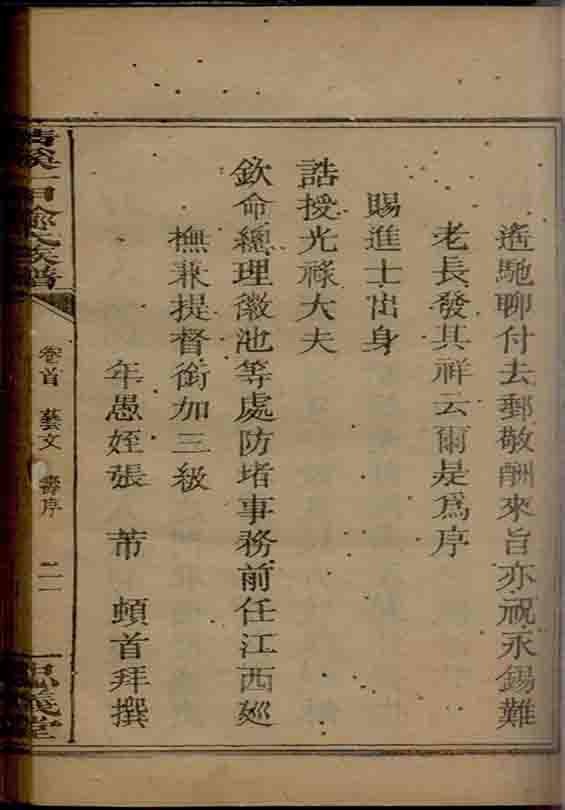 遙馳聊付去郵敬酬來旨亦祝永錫難
老長發其祥云爾是爲序
賜進士出身
誥授光祿大夫
欽命總理徽池等處防堵事務前任江西廵
撫兼提督銜加三級
年愚姪張芾頓首拜撰
氏族譜
卷首 藝文 壽序 二一
義堂